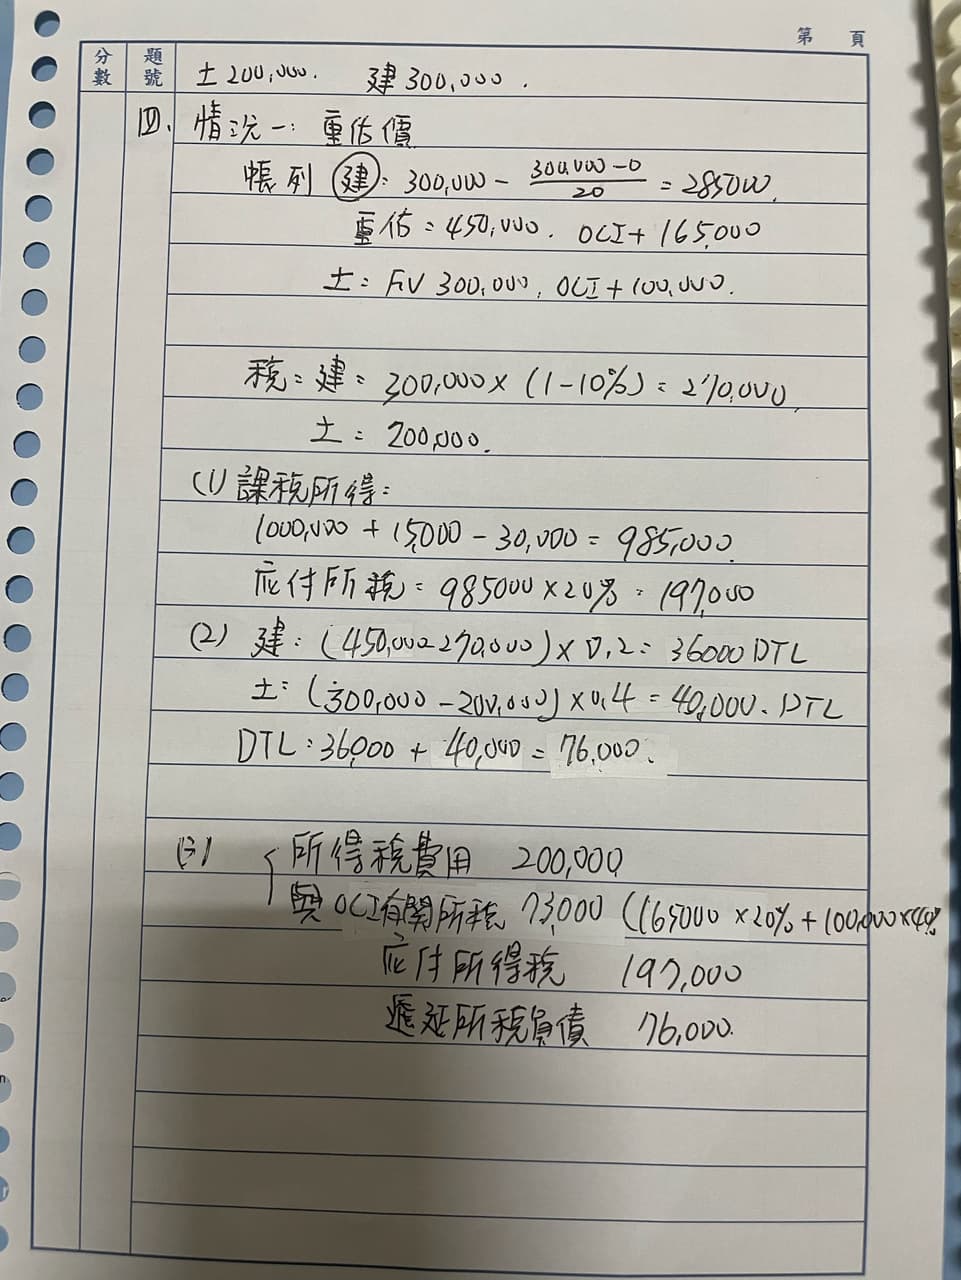 第 頁
分數 題號
土200,000. 建300,000.
四. 情況一: 重估價
帳列 建: 300,000 - (300,000-0)/20 = 285000.
重估=450,000. OCI+165,000
土: FV 300,000, OCI+100,000.
稅: 建: 300,000×(1-10%)=270,000.
土: 200,000.
(1) 課稅所得:
1000,000 + 15,000 - 30,000 = 985,000.
应付所稅 = 985000×20% = 197,000
(2) 建: (450,000-270,000)×0.2= 36000 DTL
土: (300,000-200,000)×0.4=40,000. DTL
DTL: 36,000 + 40,000 = 76,000.
(3) { 所得稅費用 200,000
與OCI有関所稅 73,000 (165000×20%+100,000×40%
应付所得稅 197,000
遞延所稅負債 76,000.